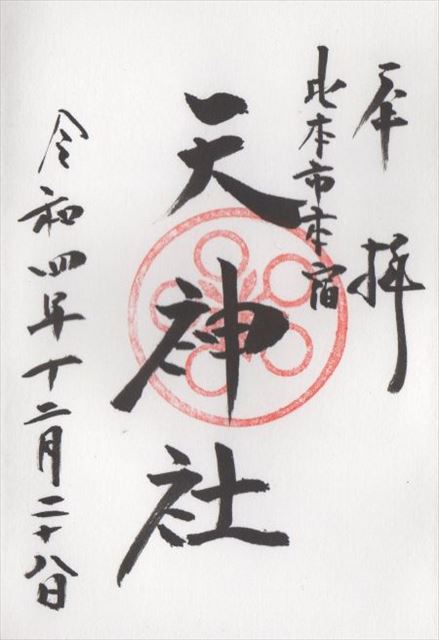 奉拝
北本市本宿
天神社
令和四年十二月二十八日